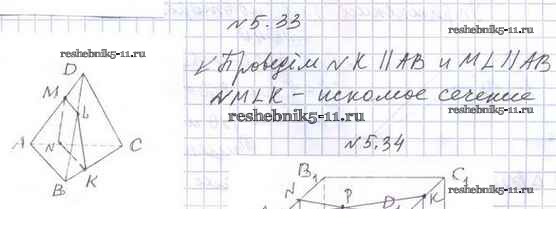 №5.33
reshebnik5-11.ru
D
M
L
A
N
C
B
K
Проведём NK || AB и ML || AB
reshebnik5-11.ru
NMLK - искомое сечение
reshebnik5-11.ru
№5.34
B₁
C₁
N
P
D₁
K
reshebnik5-11.ru